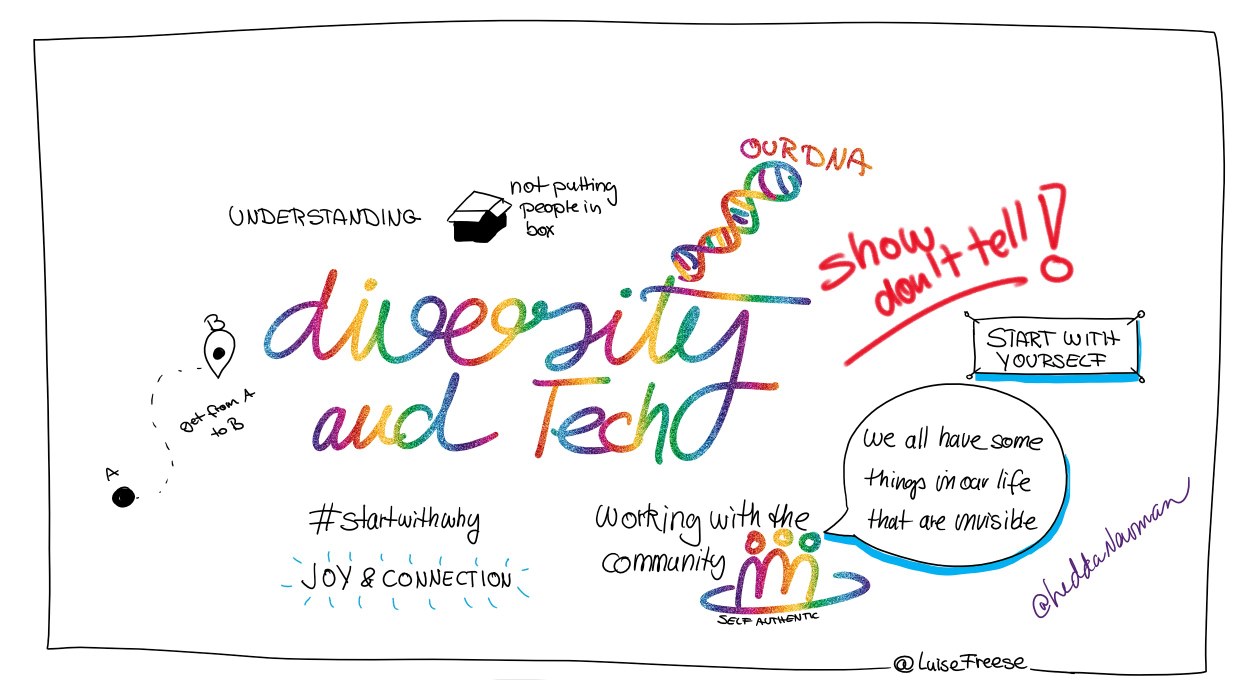 OUR DNA
UNDERSTANDING
not putting
people in
box
show
don't tell!
diversity
and Tech
START WITH
YOURSELF
B
get from A
to B
A
we all have some
things in our life
that are invisible
#startwithwhy
JOY & CONNECTION
working with the
community
SELF AUTHENTIC
@heddaNewman
@LuiseFreese